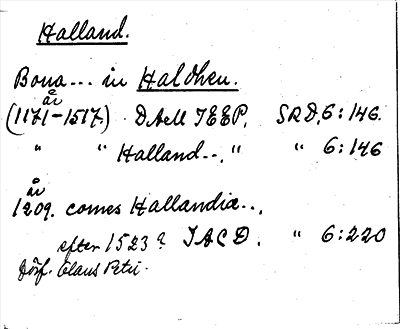 Halland.
Bona... in Haldheu.
år
(1171-1517.) DAeM TEEP. SRD, 6:146.
" " Halland..., " " 6:146
år
1209. comes Hallandia...,
efter 1523? TACD. " 6:220
Förf. Claus Petri.